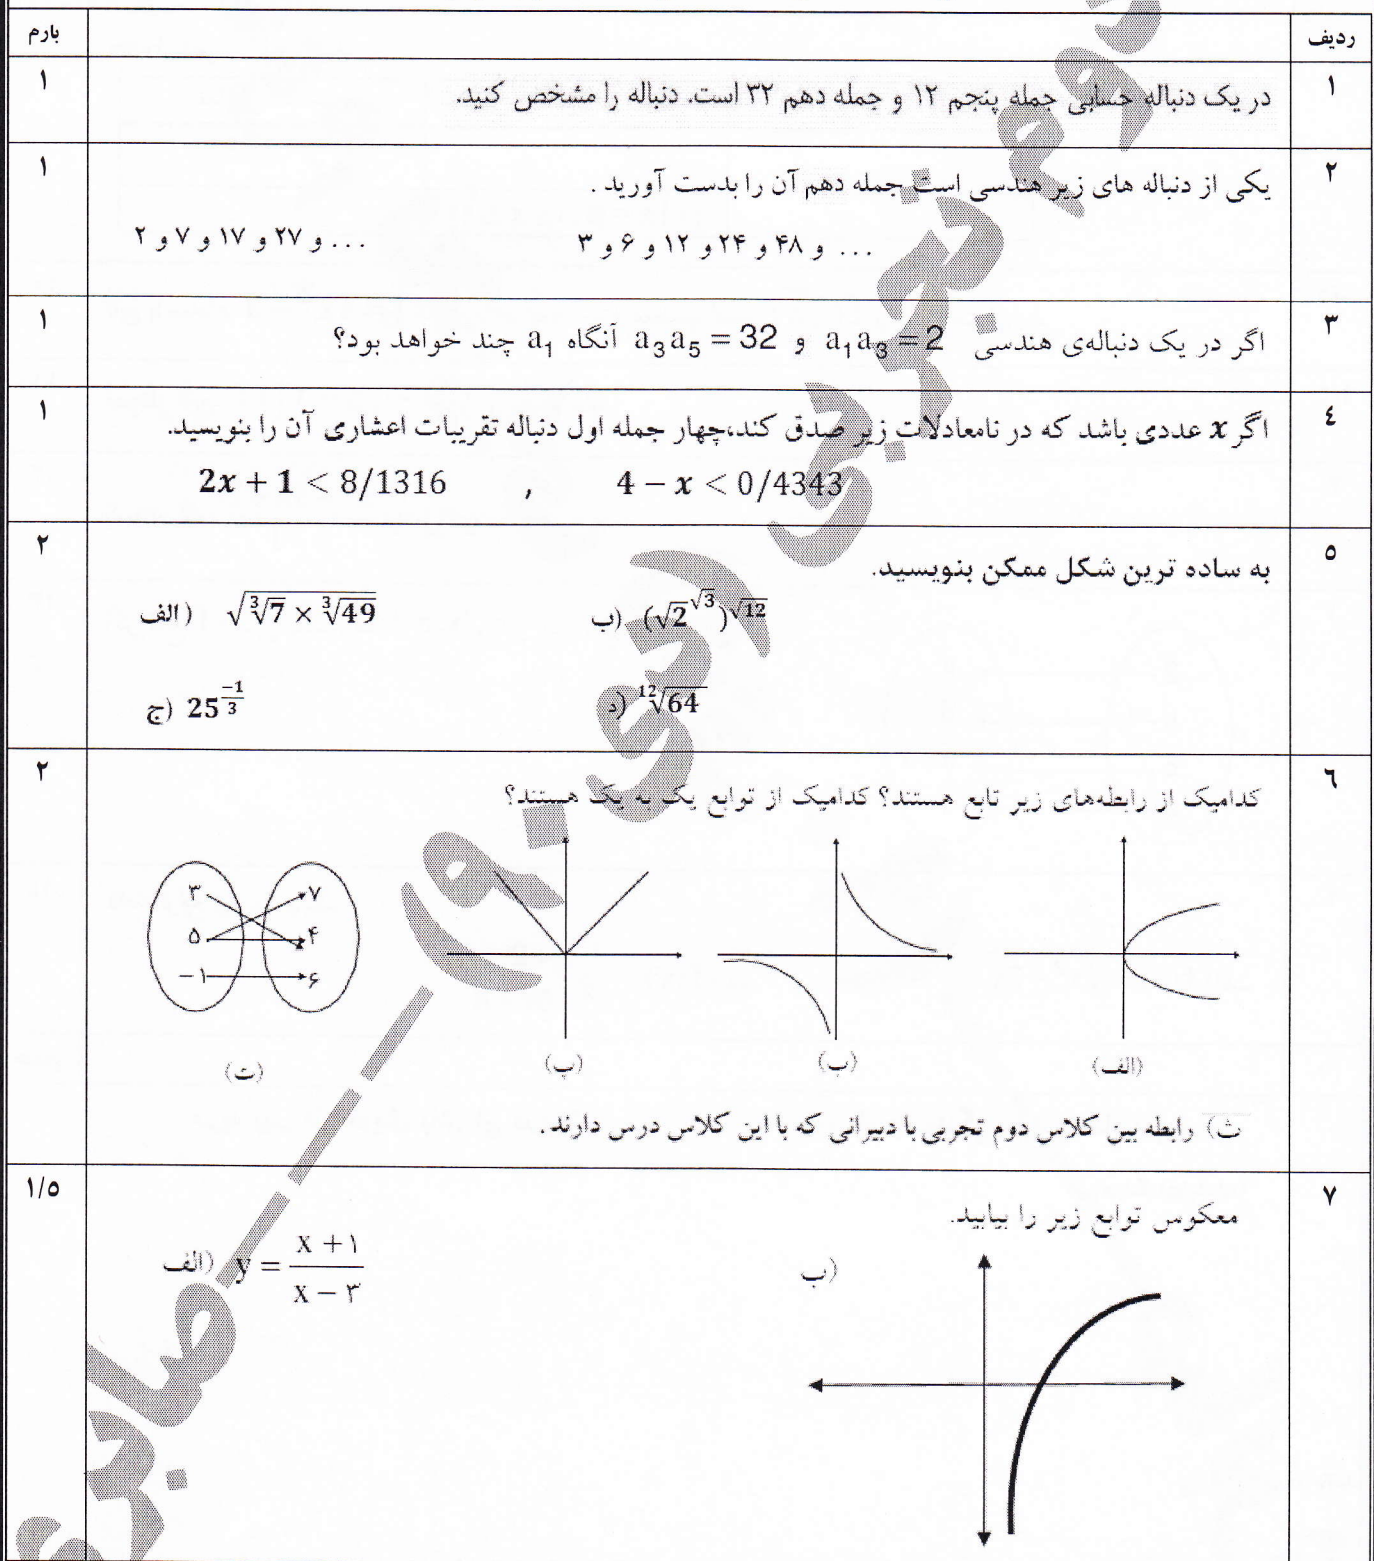 ردیف
بارم
۱
در یک دنباله حسابی جمله پنجم ۱۲ و جمله دهم ۳۲ است. دنباله را مشخص کنید.
۱
۲
یکی از دنباله های زیر هندسی است جمله دهم آن را بدست آورید .
۱
۳ و ۶ و ۱۲ و ۲۴ و ۴۸ و ...
۲ و ۷ و ۱۷ و ۲۷ و ...
۳
اگر در یک دنباله‌ی هندسی a₁a₃ = 2 و a₃a₅ = 32 آنگاه a₁ چند خواهد بود؟
۱
٤
اگر x عددی باشد که در نامعادلات زیر صدق کند،چهار جمله اول دنباله تقریبات اعشاری آن را بنویسید.
۱
2x + 1 < 8/1316 , 4 − x < 0/4343
٥
به ساده ترین شکل ممکن بنویسید.
۲
الف) √(∛7 × ∛49)
ب) (√2^√3)^√12
ج) 25^(-1/3)
د) ¹²√64
٦
کدامیک از رابطه‌های زیر تابع هستند؟ کدامیک از توابع یک به یک هستند؟
۲
۳ ۷
۵ ۴
−۱ ۶
(الف)
(ب)
(پ)
(ت)
ث) رابطه بین کلاس دوم تجربی با دبیرانی که با این کلاس درس دارند .
۷
معکوس توابع زیر را بیابید.
۱/۵
الف) y = (x + ۱)/(x − ۳)
ب)